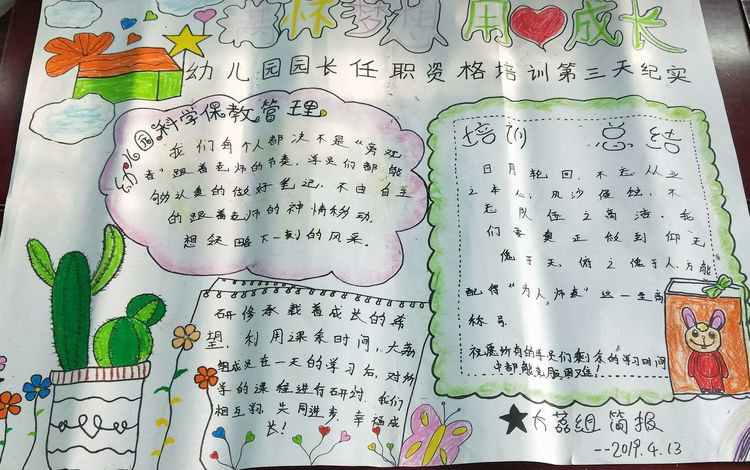 满怀梦想 用 成长
幼儿园园长任职资格培训第三天纪实
幼儿园科学保教管理
我们每个人都决不是“旁观
者”跟着老师的节奏，学员们都能
够认真的做好笔记，不由自主
的跟着老师的神情移动，
想然留下一刻的风采。
研修承载着成长的希
望，利用课余时间，大荔
组成员在一天的学习后，对所
学的课程进行研讨，我们
相互 共同进步，幸福成
长！
培训 总结
日月轮回，不忘从业
之本心，风沙 不
忘队伍之高洁，我
们要真正做到仰无
愧于天，俯之愧于人，方能
配得“为人师表”这一生
称号。
祝愿所有的学员们剩余的学习时间
中都能克服困难！
大荔组简报
--2019.4.13